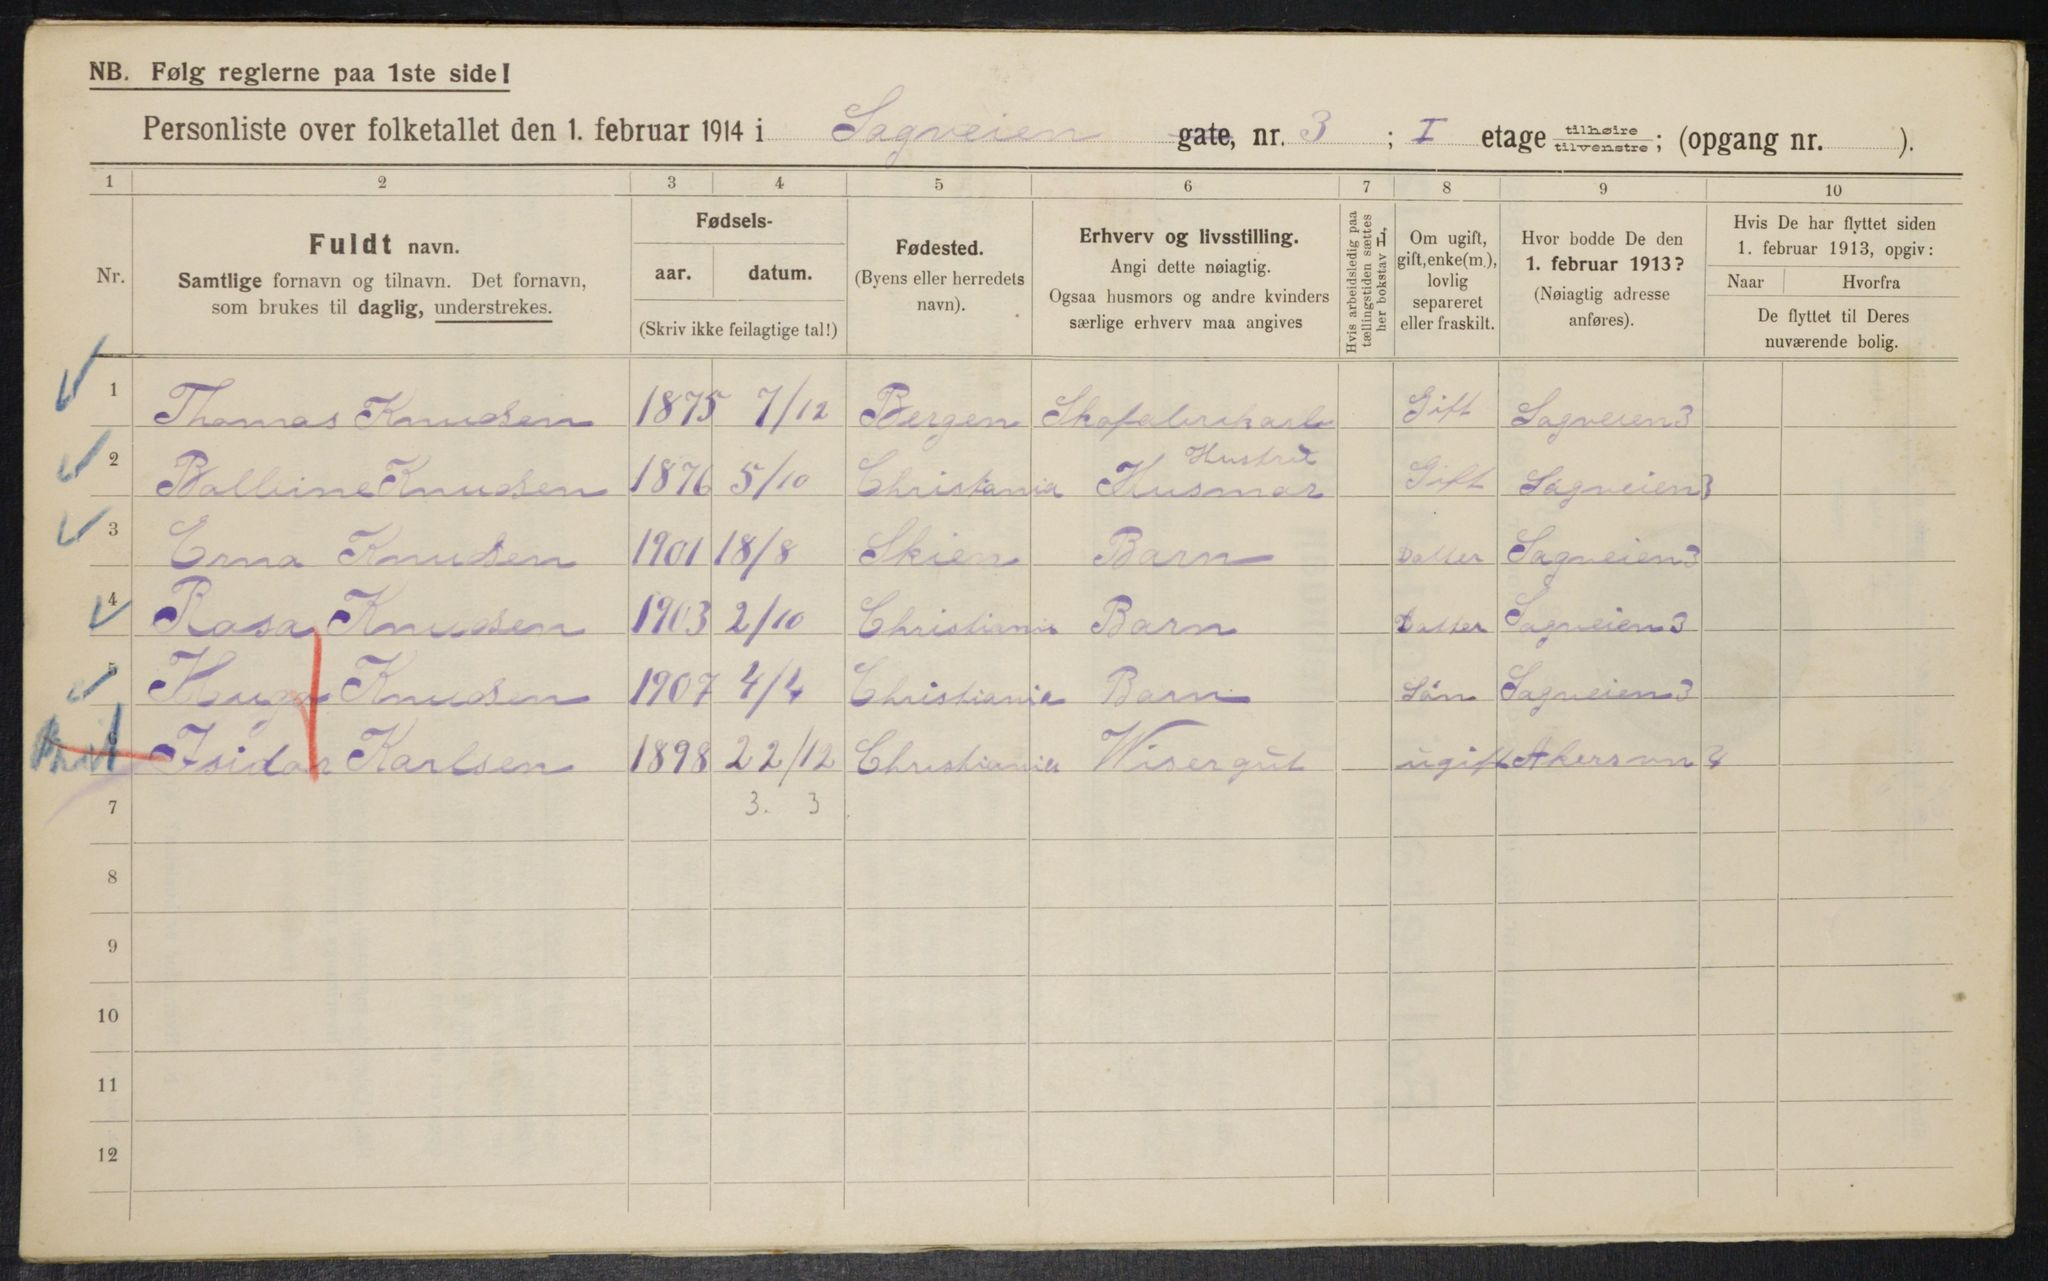 NB. Følg reglerne paa 1ste side!
Personliste over folketallet den 1. februar 1914 i Sagveien gate, nr. 3 ; I etage tilhøire tilvenstre ; (opgang nr. ).
1 2 3 4 5 6 7 8 9 10
Nr.
Fuldt navn.
Samtlige fornavn og tilnavn. Det fornavn,
som brukes til daglig, understrekes.
Fødsels-
aar. datum.
(Skriv ikke feilagtige tal!)
Fødested.
(Byens eller herredets
navn).
Erhverv og livsstilling.
Angi dette nøiagtig.
Ogsaa husmors og andre kvinders
særlige erhverv maa angives
Hvis arbeidsledig paa
tællingstiden sættes
her bokstav L,
Om ugift,
gift, enke(m.),
lovlig
separeret
eller fraskilt.
Hvor bodde De den
1. februar 1913?
(Nøiagtig adresse
anføres).
Hvis De har flyttet siden
1. februar 1913, opgiv:
Naar Hvorfra
De flyttet til Deres
nuværende bolig.
1 Thomas Knudsen 1875 7/12 Bergen Gift Sagveien 3
Hustru
2 Knudsen 1876 5/10 Christiania Husmor Gift Sagveien 3
3 Erna Knudsen 1901 18/8 Skien Barn Datter Sagveien 3
4 Rosa Knudsen 1903 2/10 Christiania Barn Datter Sagveien 3
5 Hugo Knudsen 1907 4/4 Christiania Barn Sön Sagveien 3
6 Isidor Karlsen 1898 22/12 Christiania Visergut ugift
7 3. 3
8
9
10
11
12